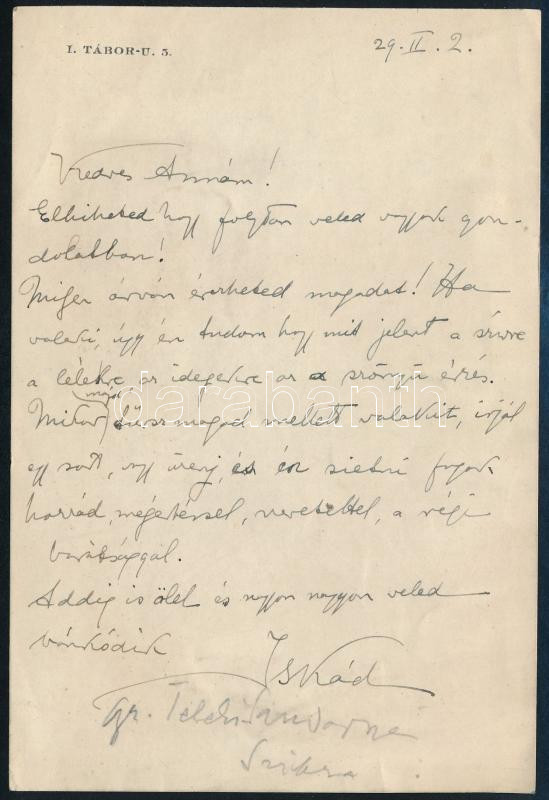 I. TÁBOR-U. 5.
29. II. 2.
Kedves Annám!
Elhiheted hogy folyton veled vagyok gon-
dolatban!
Milyen árván érezheted magadat! Ha
valaki, úgy én tudom hogy mit jelent a szivre
a lélekre, az idegekre az a szörnyű érzés.
majd
Mikor tűrsz magad mellett valakit, írjál
egy sort, vagy üzenj, és én sietni fogok
hozzád, megértéssel, szeretettel, a régi
barátsággal.
Addig is ölel és nagyon nagyon veled
bánkódik
Iskád
gr. Teleki Sándorné
Szikra
darabanth